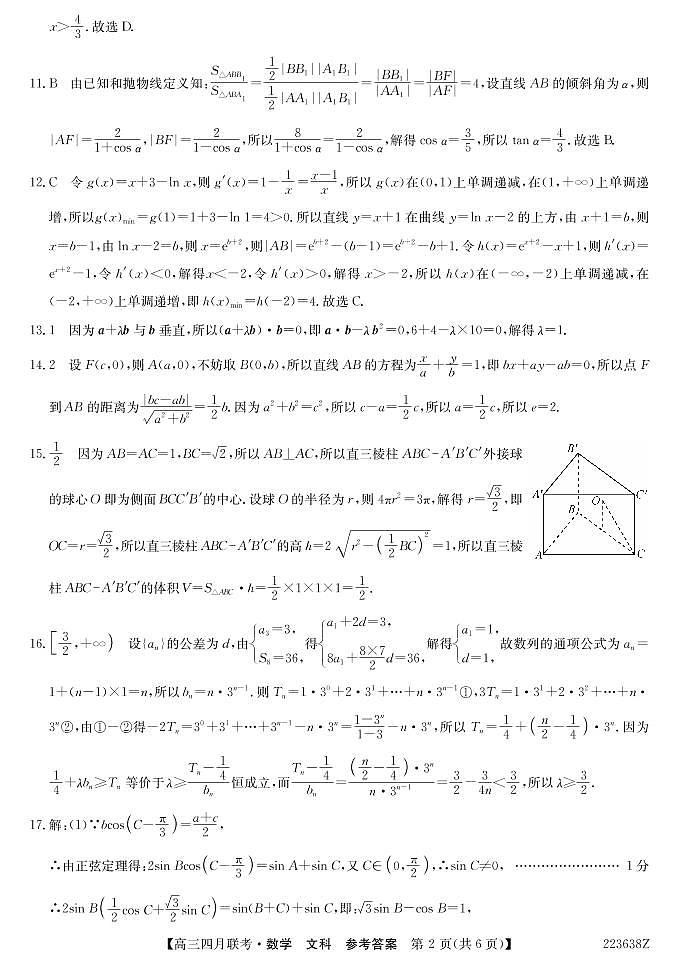 x>4/3.故选 D.
11. B 由已知和抛物线定义知:S△ABB₁/S△ABA₁=(1/2|BB₁||A₁B₁|)/(1/2|AA₁||A₁B₁|)=|BB₁|/|AA₁|=|BF|/|AF|=4,设直线 AB 的倾斜角为 α,则
|AF|=2/(1+cos α),|BF|=2/(1-cos α),所以8/(1+cos α)=2/(1-cos α),解得 cos α=3/5,所以 tan α=4/3.故选 B.
12. C 令 g(x)=x+3-ln x,则 g′(x)=1-1/x=(x-1)/x,所以 g(x)在(0,1)上单调递减,在(1,+∞)上单调递
增,所以g(x)min=g(1)=1+3-ln 1=4>0.所以直线 y=x+1 在曲线 y=ln x-2 的上方,由 x+1=b,则
x=b-1,由 ln x-2=b,则 x=e^(b+2),则|AB|=e^(b+2)-(b-1)=e^(b+2)-b+1.令 h(x)=e^(x+2)-x+1,则 h′(x)=
e^(x+2)-1,令 h′(x)<0,解得x<-2,令 h′(x)>0,解得 x>-2,所以 h(x)在(-∞,-2)上单调递减,在
(-2,+∞)上单调递增,即 h(x)min=h(-2)=4.故选 C.
13. 1 因为 a+λb 与 b 垂直,所以(a+λb)·b=0,即 a·b-λb²=0,6+4-λ×10=0,解得 λ=1.
14. 2 设 F(c,0),则 A(a,0),不妨取 B(0,b),所以直线 AB 的方程为x/a+y/b=1,即 bx+ay-ab=0,所以点 F
到AB 的距离为|bc-ab|/√(a²+b²)=1/2 b.因为 a²+b²=c²,所以 c-a=1/2 c,所以 a=1/2 c,所以 e=2.
15. 1/2 因为 AB=AC=1,BC=√2,所以 AB⊥AC,所以直三棱柱 ABC-A′B′C′外接球
的球心 O 即为侧面 BCC′B′的中心.设球 O 的半径为 r,则 4πr²=3π,解得 r=√3/2,即
OC=r=√3/2,所以直三棱柱 ABC-A′B′C′的高 h=2√(r²-(1/2 BC)²)=1,所以直三棱
柱 ABC-A′B′C′的体积 V=S△ABC·h=1/2×1×1×1=1/2.
B′
A′
C′
O
B
A
C
16. [3/2,+∞) 设{aₙ}的公差为 d,由{a₃=3, S₈=36, 得{a₁+2d=3, 8a₁+(8×7)/2 d=36, 解得{a₁=1, d=1, 故数列的通项公式为 aₙ=
1+(n-1)×1=n,所以 bₙ=n·3ⁿ⁻¹.则 Tₙ=1·3⁰+2·3¹+…+n·3ⁿ⁻¹①,3Tₙ=1·3¹+2·3²+…+n·
3ⁿ②,由①-②得-2Tₙ=3⁰+3¹+…+3ⁿ⁻¹-n·3ⁿ=(1-3ⁿ)/(1-3)-n·3ⁿ,所以 Tₙ=1/4+(n/2-1/4)·3ⁿ.因为
1/4+λbₙ≥Tₙ 等价于 λ≥(Tₙ-1/4)/bₙ 恒成立,而(Tₙ-1/4)/bₙ=((n/2-1/4)·3ⁿ)/(n·3ⁿ⁻¹)=3/2-3/4n<3/2,所以 λ≥3/2.
17.解:(1)∵bcos(C-π/3)=(a+c)/2,
∴由正弦定理得:2sin Bcos(C-π/3)=sin A+sin C,又 C∈(0,π/2),∴sin C≠0, …………………… 1分
∴2sin B(1/2 cos C+√3/2 sin C)=sin(B+C)+sin C,即:√3sin B-cos B=1,
【高三四月联考·数学 文科 参考答案 第 2 页(共 6 页)】 223638Z